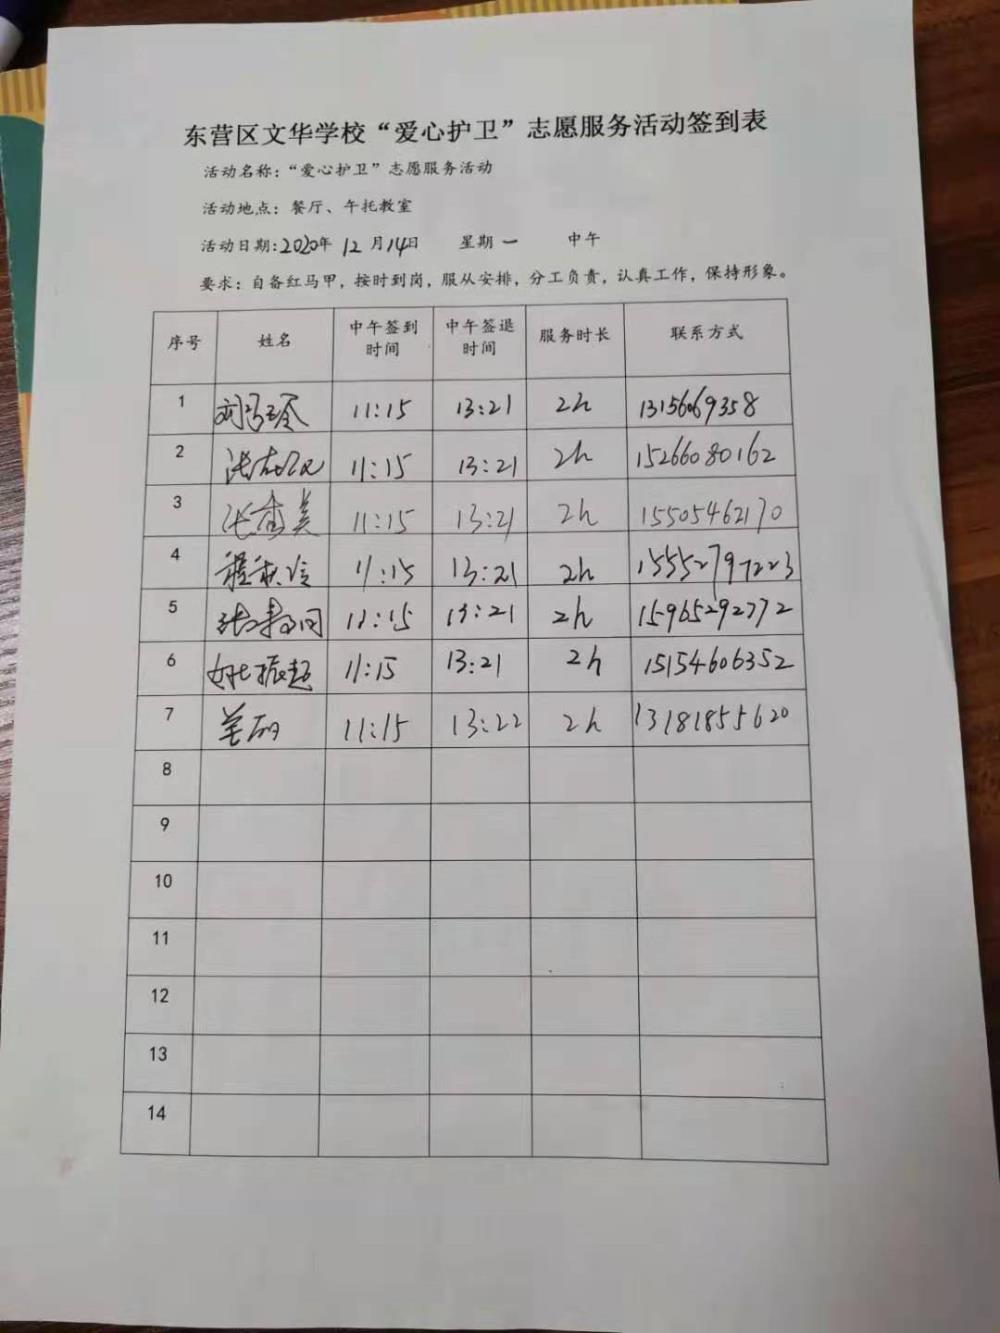 东营区文华学校“爱心护卫”志愿服务活动签到表
活动名称：“爱心护卫”志愿服务活动
活动地点：餐厅、午托教室
活动日期：2020年 12月14日 星期一 中午
要求：自备红马甲，按时到岗，服从安排，分工负责，认真工作，保持形象。
序号 姓名 中午签到时间 中午签退时间 服务时长 联系方式
1 11:15 13:21 2h 13156069358
2 11:15 13:21 2h 15266080162
3 张香美 11:15 13:21 2h 15505462170
4 11:15 13:21 2h 15552797223
5 11:15 13:21 2h 15965292772
6 姚振超 11:15 13:21 2h 15154606352
7 11:15 13:22 2h 13181855620
8
9
10
11
12
13
14